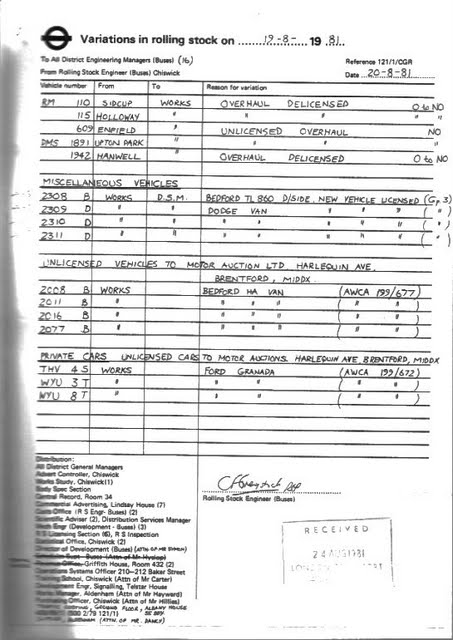 Variations in rolling stock on 19-8- 19 81.
To All District Engineering Managers (Buses) (16)
Reference 121/1/CGR
From Rolling Stock Engineer (Buses) Chiswick
Date 20-8-81
Vehicle number From To Reason for variation
RM 110 SIDCUP WORKS OVERHAUL DELICENSED O to NO
115 HOLLOWAY " " " " "
609 ENFIELD " UNLICENSED OVERHAUL NO
DMS 1891 UPTON PARK "
1942 HANWELL " OVERHAUL DELICENSED O to NO
MISCELLANEOUS VEHICLES
2308 B WORKS D.S.M. BEDFORD TL 860 D/SIDE. NEW VEHICLE LICENSED (Gp 3)
2309 D " " DODGE VAN " " " ( " )
2310 D " " " " " " " ( " )
2311 D " " " " " " " ( " )
UNLICENSED VEHICLES TO MOTOR AUCTION LTD. HARLEQUIN AVE.
BRENTFORD, MIDDX.
2008 B WORKS BEDFORD HA VAN (AWCA 199/677)
2011 B " " " " ( " " )
2016 B " " " " ( " " )
2077 B " " " " ( " " )
PRIVATE CARS UNLICENSED CARS TO MOTOR AUCTIONS. HARLEQUIN AVE, BRENTFORD, MIDDX
THV 4 S WORKS FORD GRANADA (AWCA 199/672)
WYU 3 T " " " ( " " )
WYU 8 T " " " ( " " )
Distribution:
All District General Managers
Advert Controller, Chiswick
Works Study, Chiswick(1)
Body Spec Section
Central Record, Room 34
Commercial Advertising, Lindsay House (7)
Costs Office (R S Engr- Buses) (2)
Scientific Adviser (2), Distribution Services Manager
Tech Engr (Development - Buses) (3)
R S Licensing Section (6), R S Inspection
Statistical Office, Chiswick (2)
Director of Development (Buses)
Griffith House, Room 432 (2)
Operations Systems Officer 210–212 Baker Street
Training School, Chiswick (Attn of Mr Carter)
Development Engr, Signalling, Telstar House
Works Manager, Aldenham (Attn of Mr Hayward)
Purchasing Officer, Chiswick (Attn of Mr Hillies)
GROUND FLOOR, ALBANY HOUSE
500 2/79 121/1)
(ATTN. OF MR. DANCY)
Rolling Stock Engineer (Buses)
RECEIVED
24 AUG 1981